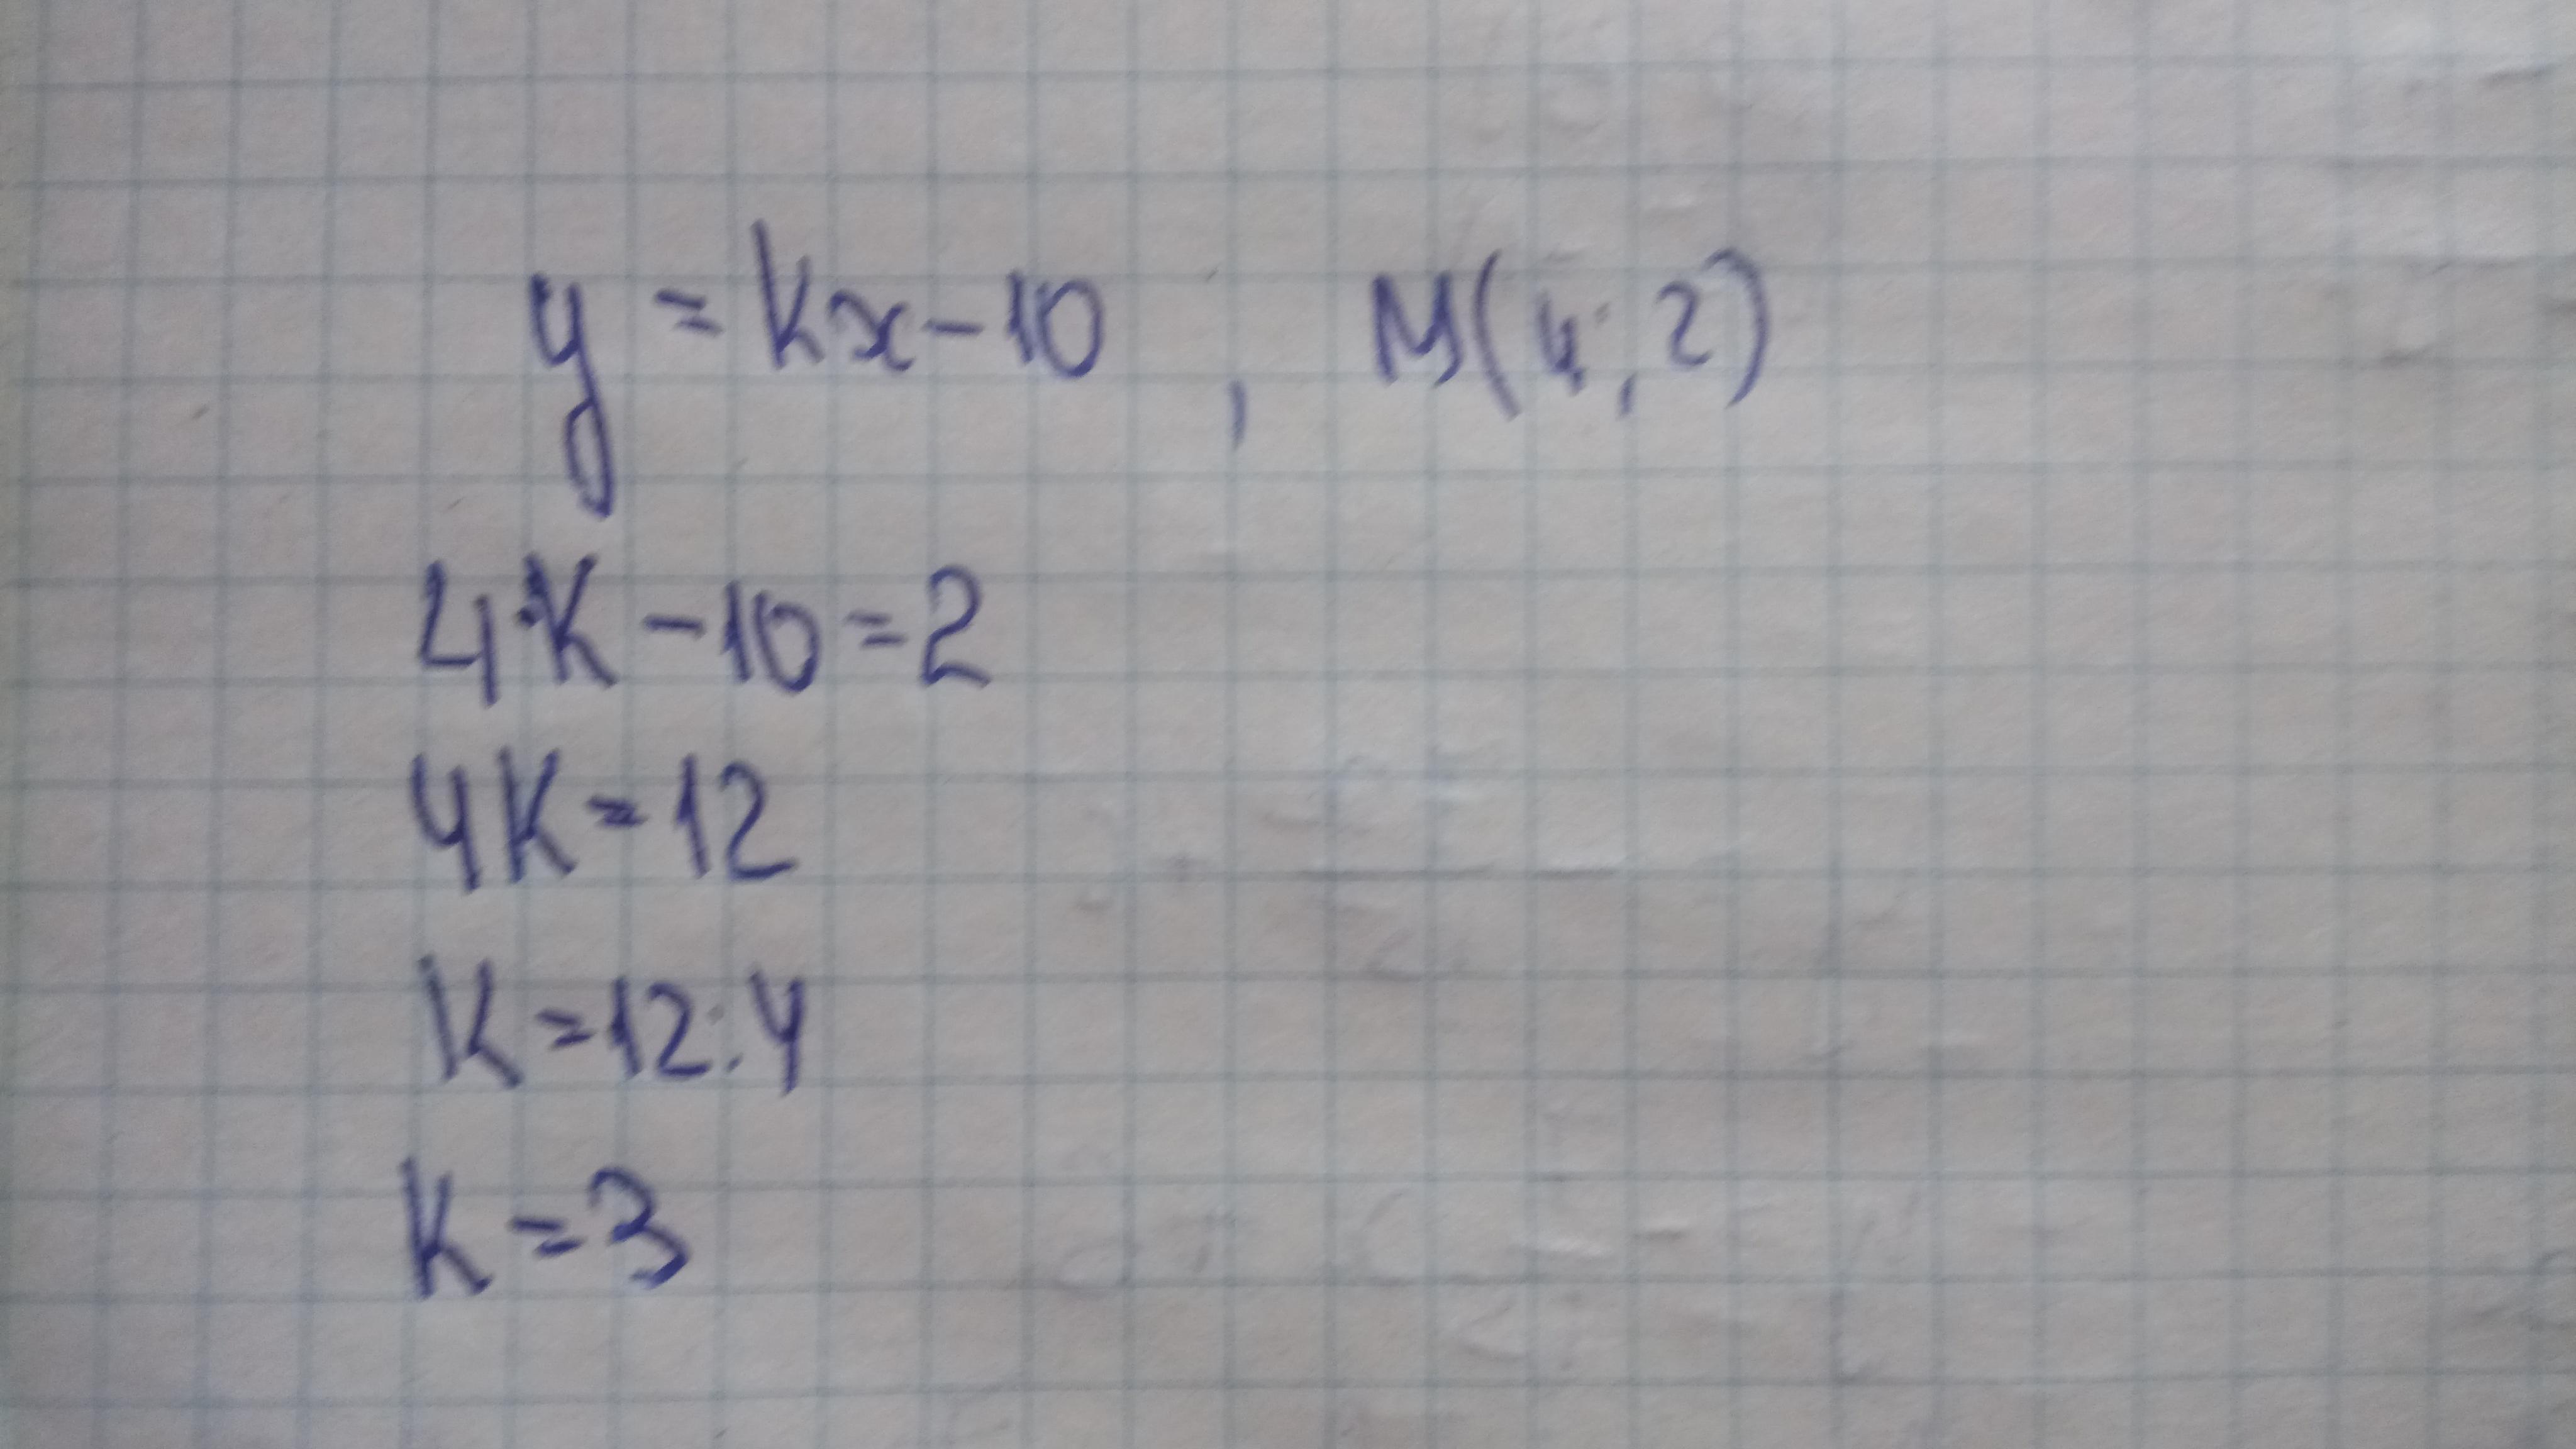 y = kx - 10 , M(4; 2)
4·k - 10 = 2
4k = 12
k = 12:4
k = 3